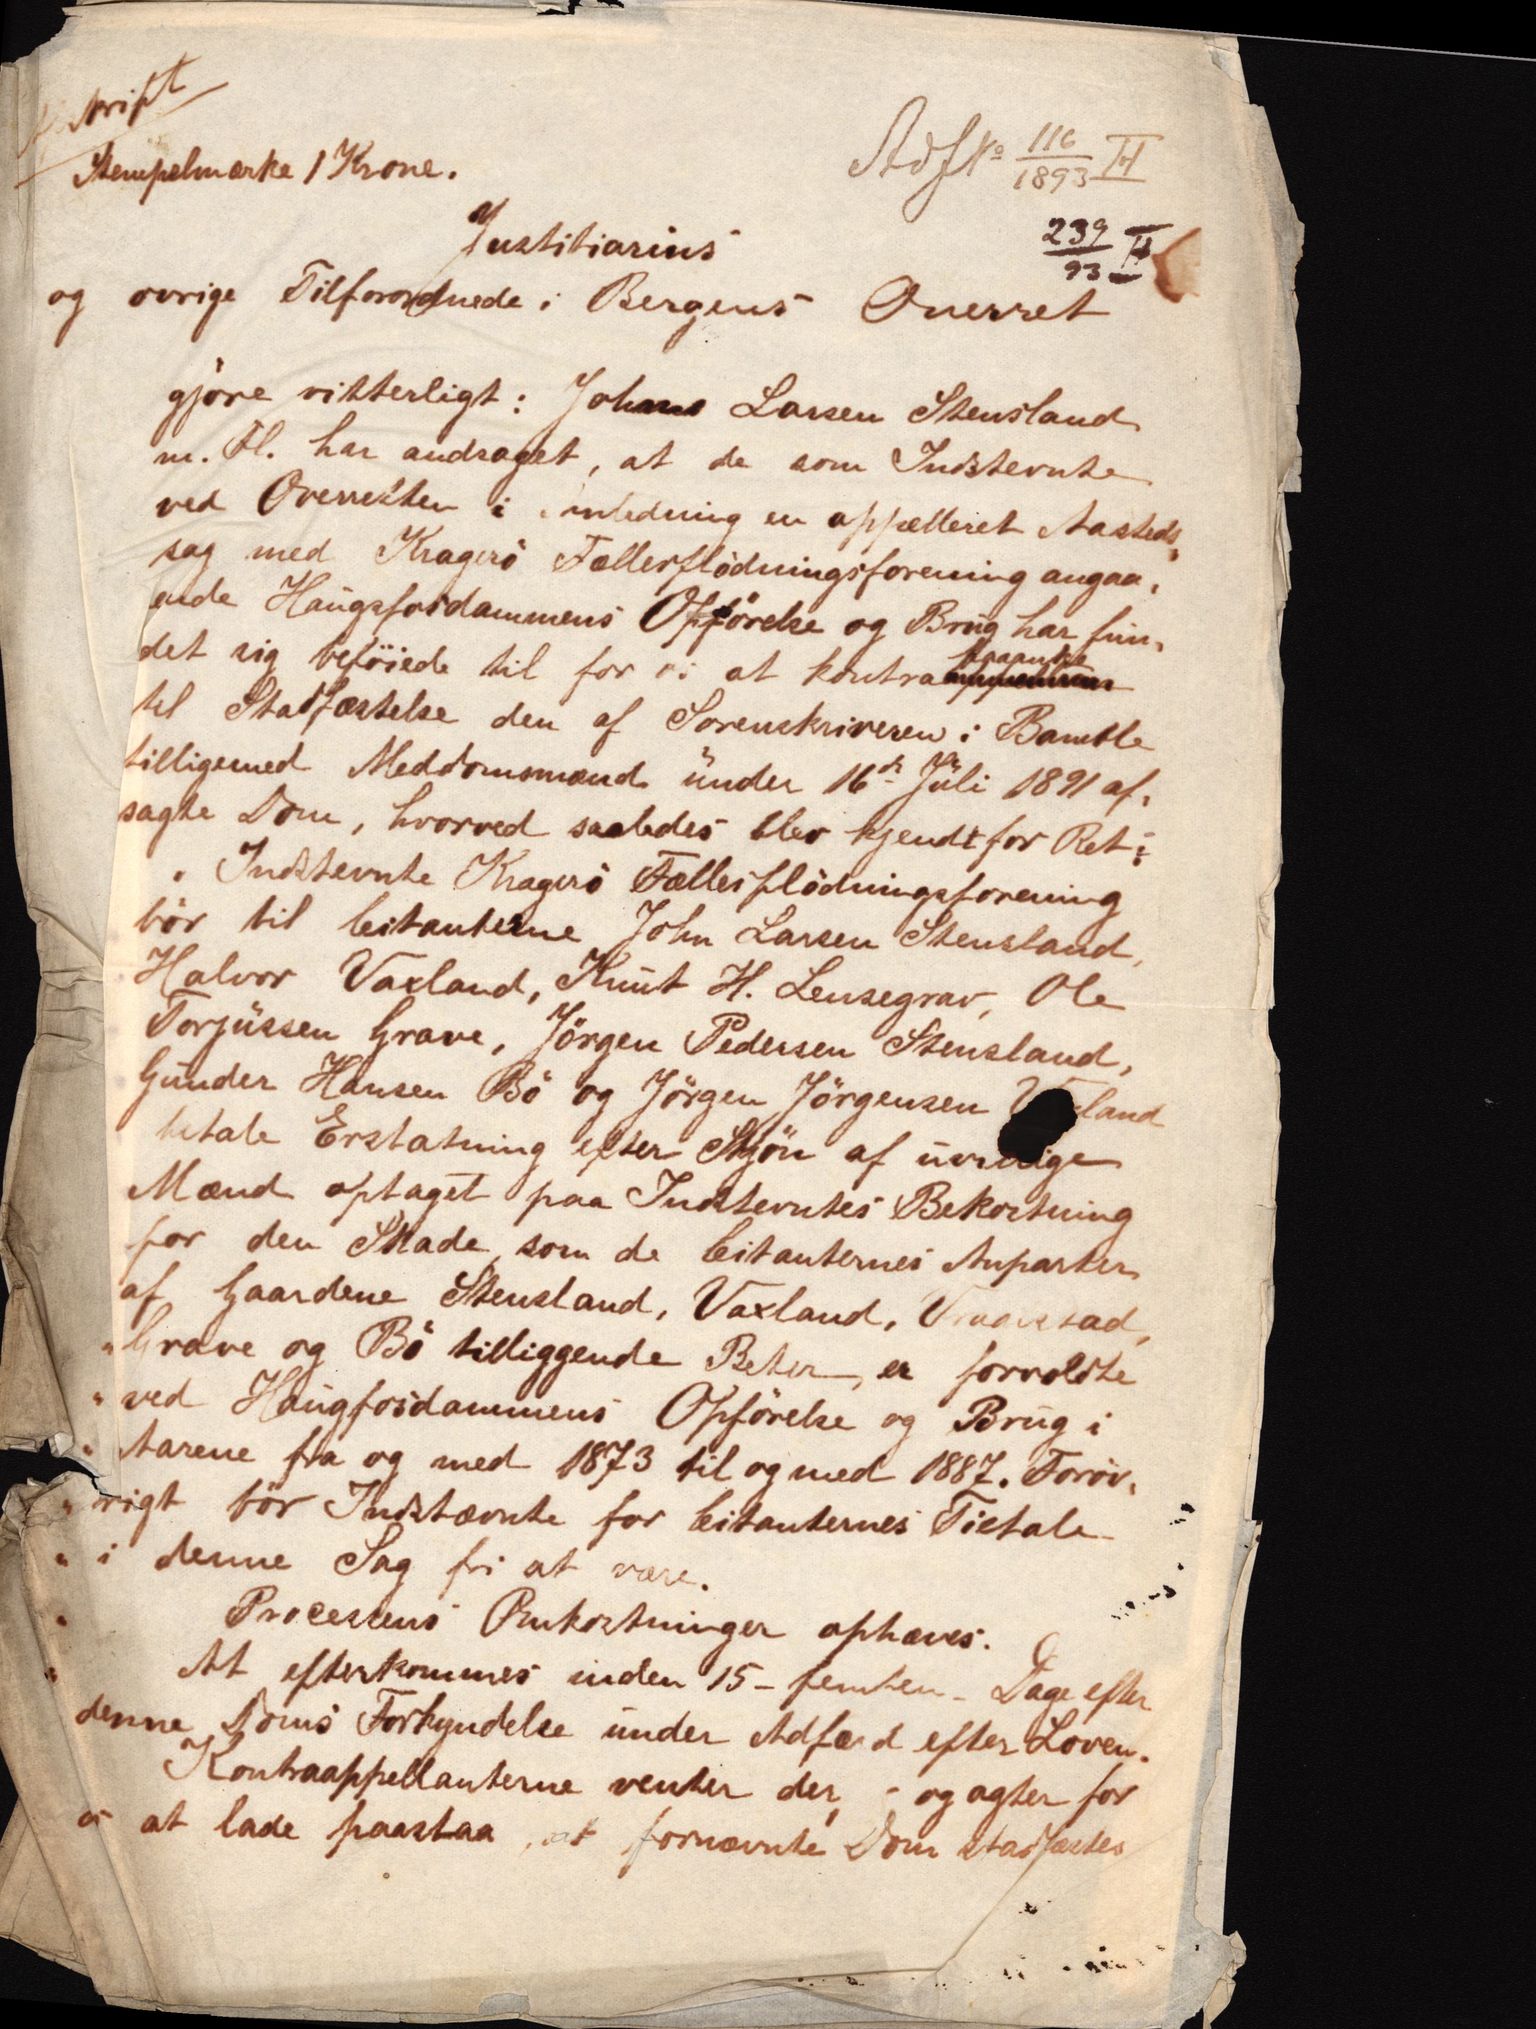 Afskrift
Stempelmærke 1 Krone.
116
1893 H
239 H
93
Justitiarius
og ovrige Tilforordnede i Bergens Overret
gjöre vitterligt: Johans Larsen Stensland
m. Fl. har andraget, at de som Indstevnte
ved Overretten i Anledning en appelleret Aasteds,
sag med Kragerö Fællesflödningsforening angaa,
ende Haugsfosdammens Opförelse og Brug har fun,
det sig beföiede til for os at kontra
til Stadfæstelse den af Sorenskriveren i Bamble
tilligemed Meddomsmænd under 16de Juli 1891 af,
sagte Dom, hvorved saaledes blev kjendt for Ret:
" Indstevnte Kragerö Fællesflödningsforening
bör til Citanterne John Larsen Stensland,
Halvor Vaxland, Knut H. Lensegrav, Ole
Torjussen Grave, Jörgen Pedersen Stensland,
Gunder Hansen Bö og Jörgen Jörgensen Vaxland
betale Erstatning efter Skjön af uvillige
Mænd optaget paa Indstevntes Bekostning
for den Skade, som de Citanternes Anparter
af Gaardene Stensland, Vaxland,
" Grave og Bö tilliggende Beter, er forvoldte
" ved Haugfosdammens Opförelse og Brug i
" Aarene fra og med 1873 til og med 1887. Foröv,
" rigt bör Indstævnte for Citanternes Tiltale
" i denne Sag fri at være.
" Processens Omkostninger ophæves.
" At efterkommes inden 15 - femten - Dage efter
denne Doms Forkyndelse under Adfærd efter Loven.
Kontraappellanterne venter der, - og agter for
os at lade paastaa, at fornævnte Dom stadfæstes